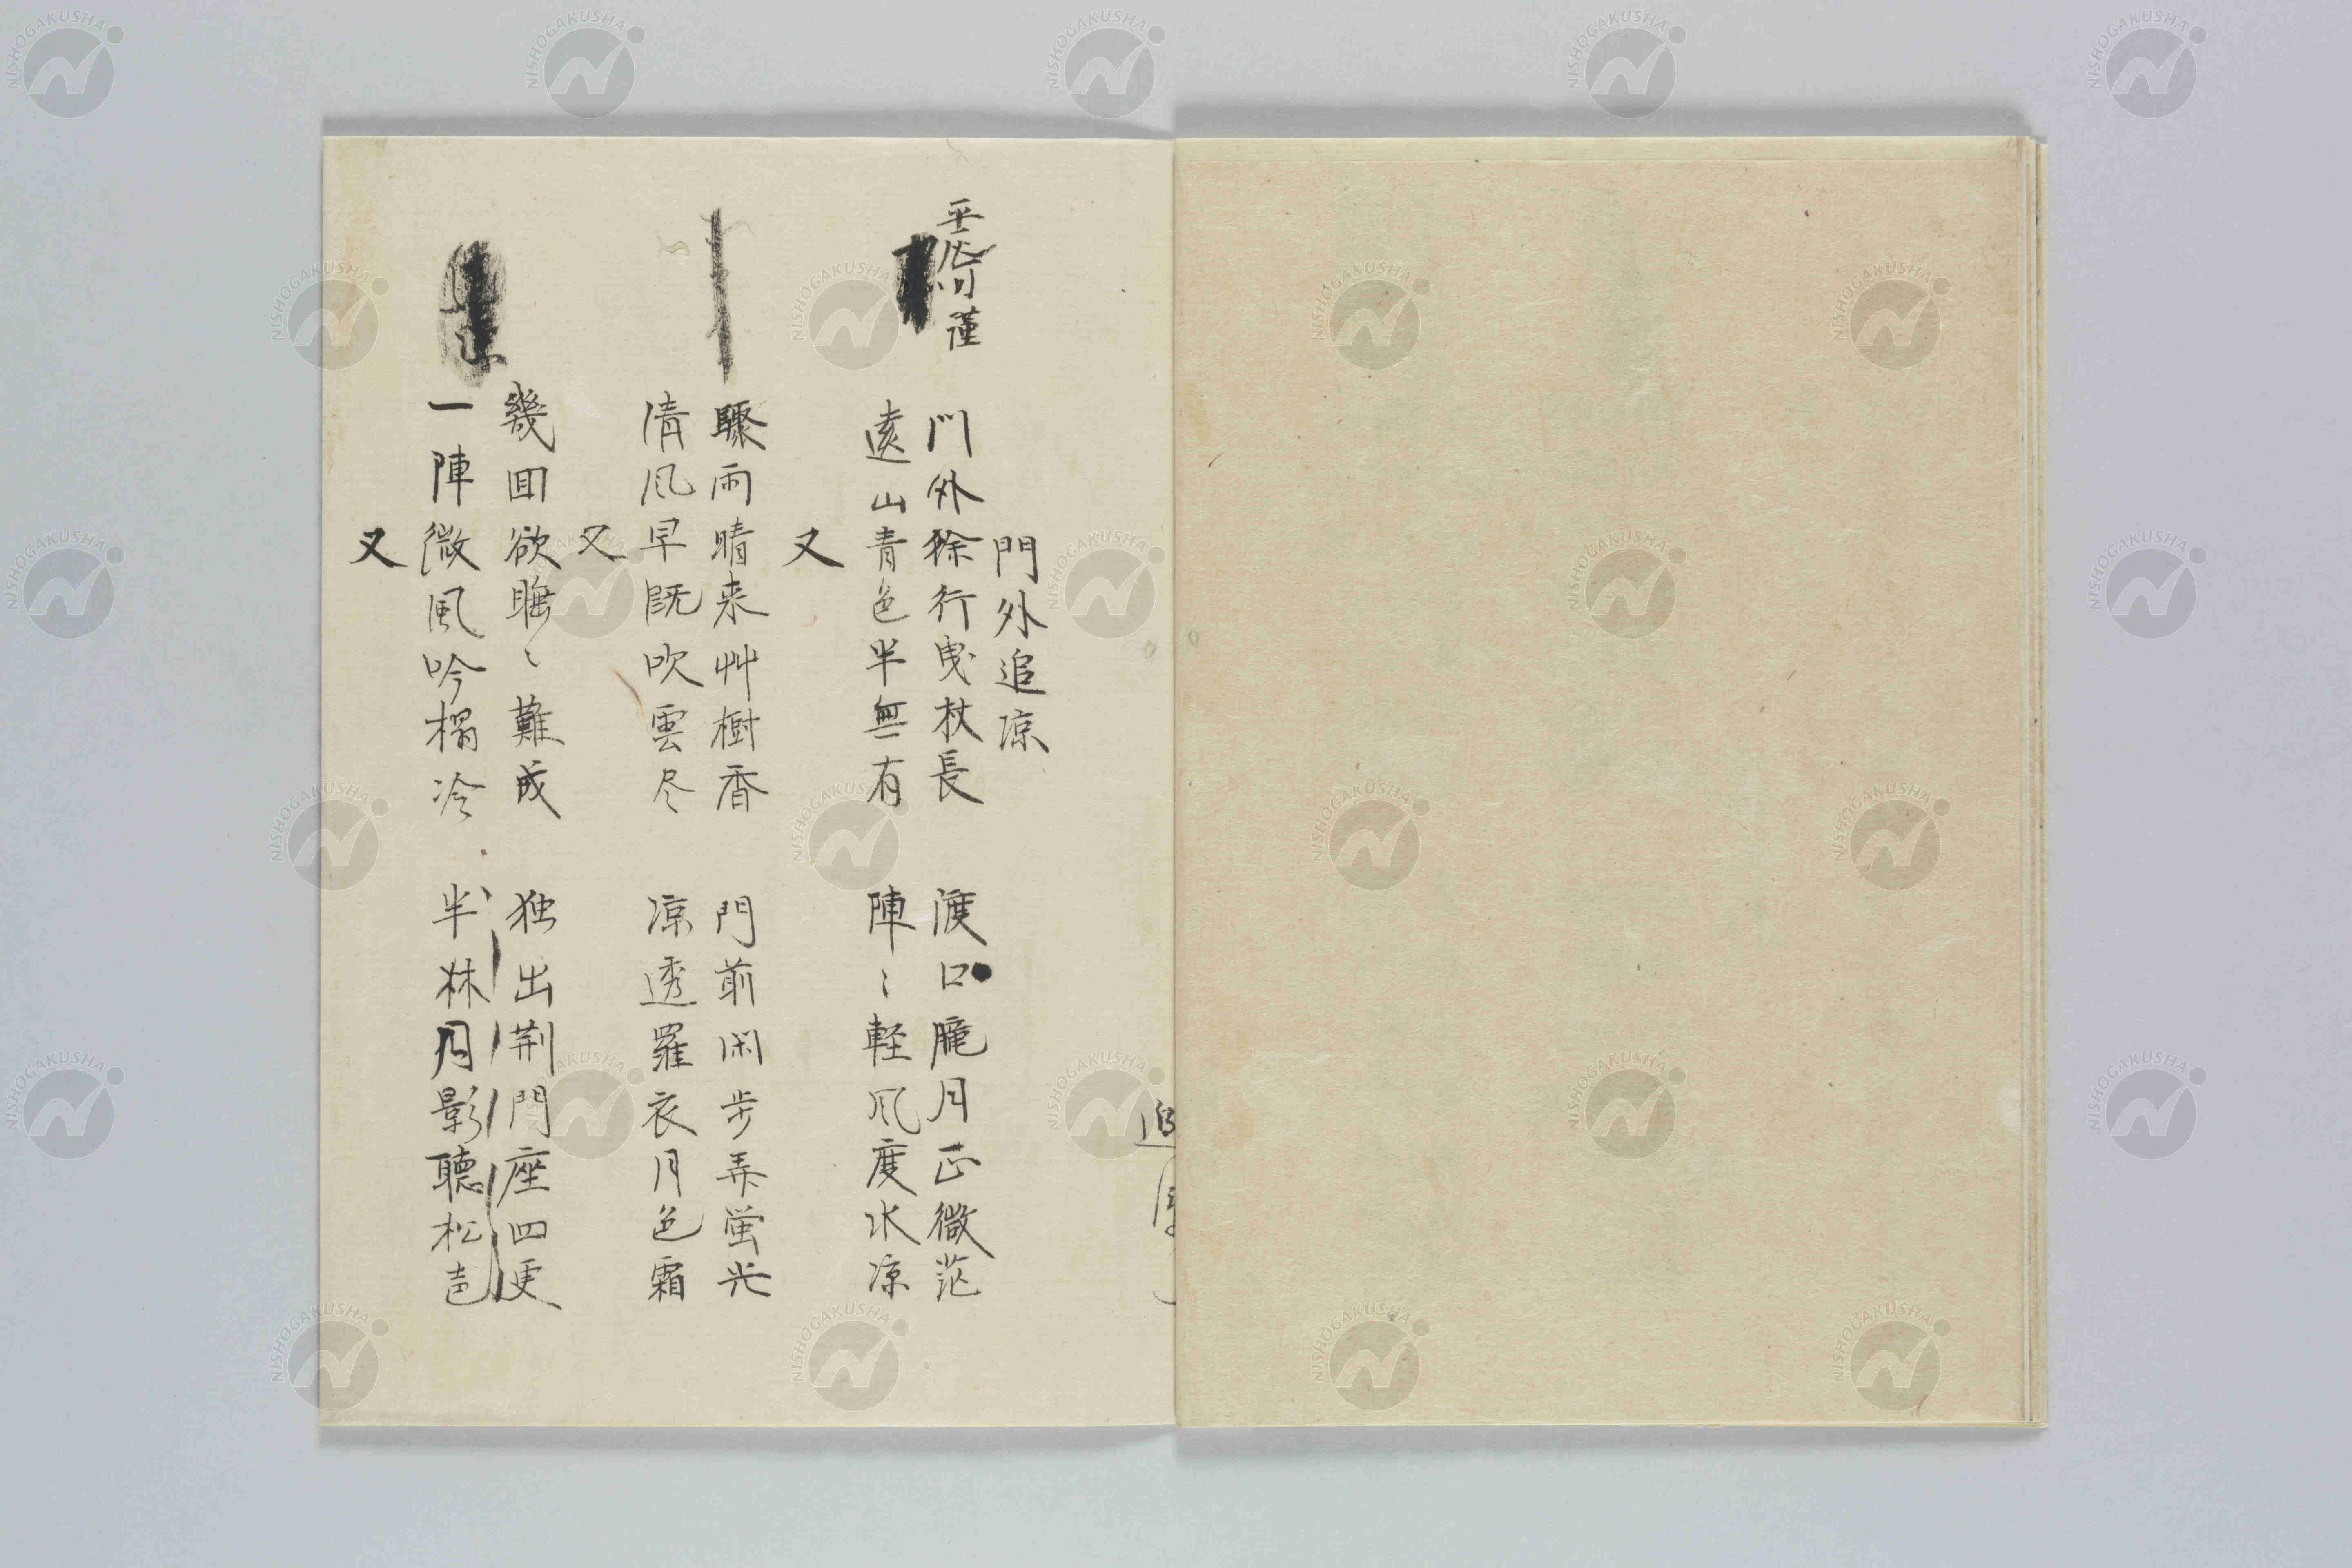 門外追凉
門外徐行曳杖長 渡口朧月正微茫
遠山青色半無有 陣〻軽風度水凉
又
驟雨晴来艸樹香 門前閑步弄蛍光
清風早既吹雲尽 凉透羅衣月色霜
又
幾回欲睡〻難成 独出荆門座四更
一陣微風吟榻冷 半林月影聴松声
又
追
NISHOGAKUSHA